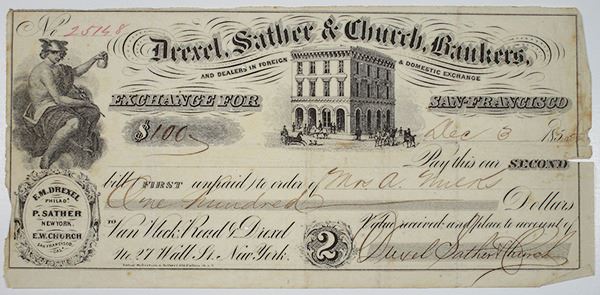 No 25148
Drexel, Sather & Church, Bankers,
AND DEALERS IN FOREIGN & DOMESTIC EXCHANGE
EXCHANGE FOR SAN-FRANCISCO
$100 Dec 3 185
Pay this our SECOND
bill FIRST unpaid to order of Mrs. A.
One Hundred Dollars
F.M. DREXEL
PHILADA.
P. SATHER
NEW YORK.
E.W. CHURCH
SAN FRANCISCO,
CAL.
To Van Vleck, Read & Drexel
No. 27 Wall St. New York.
2
Value received and place to account of
Drexel Sather & Church